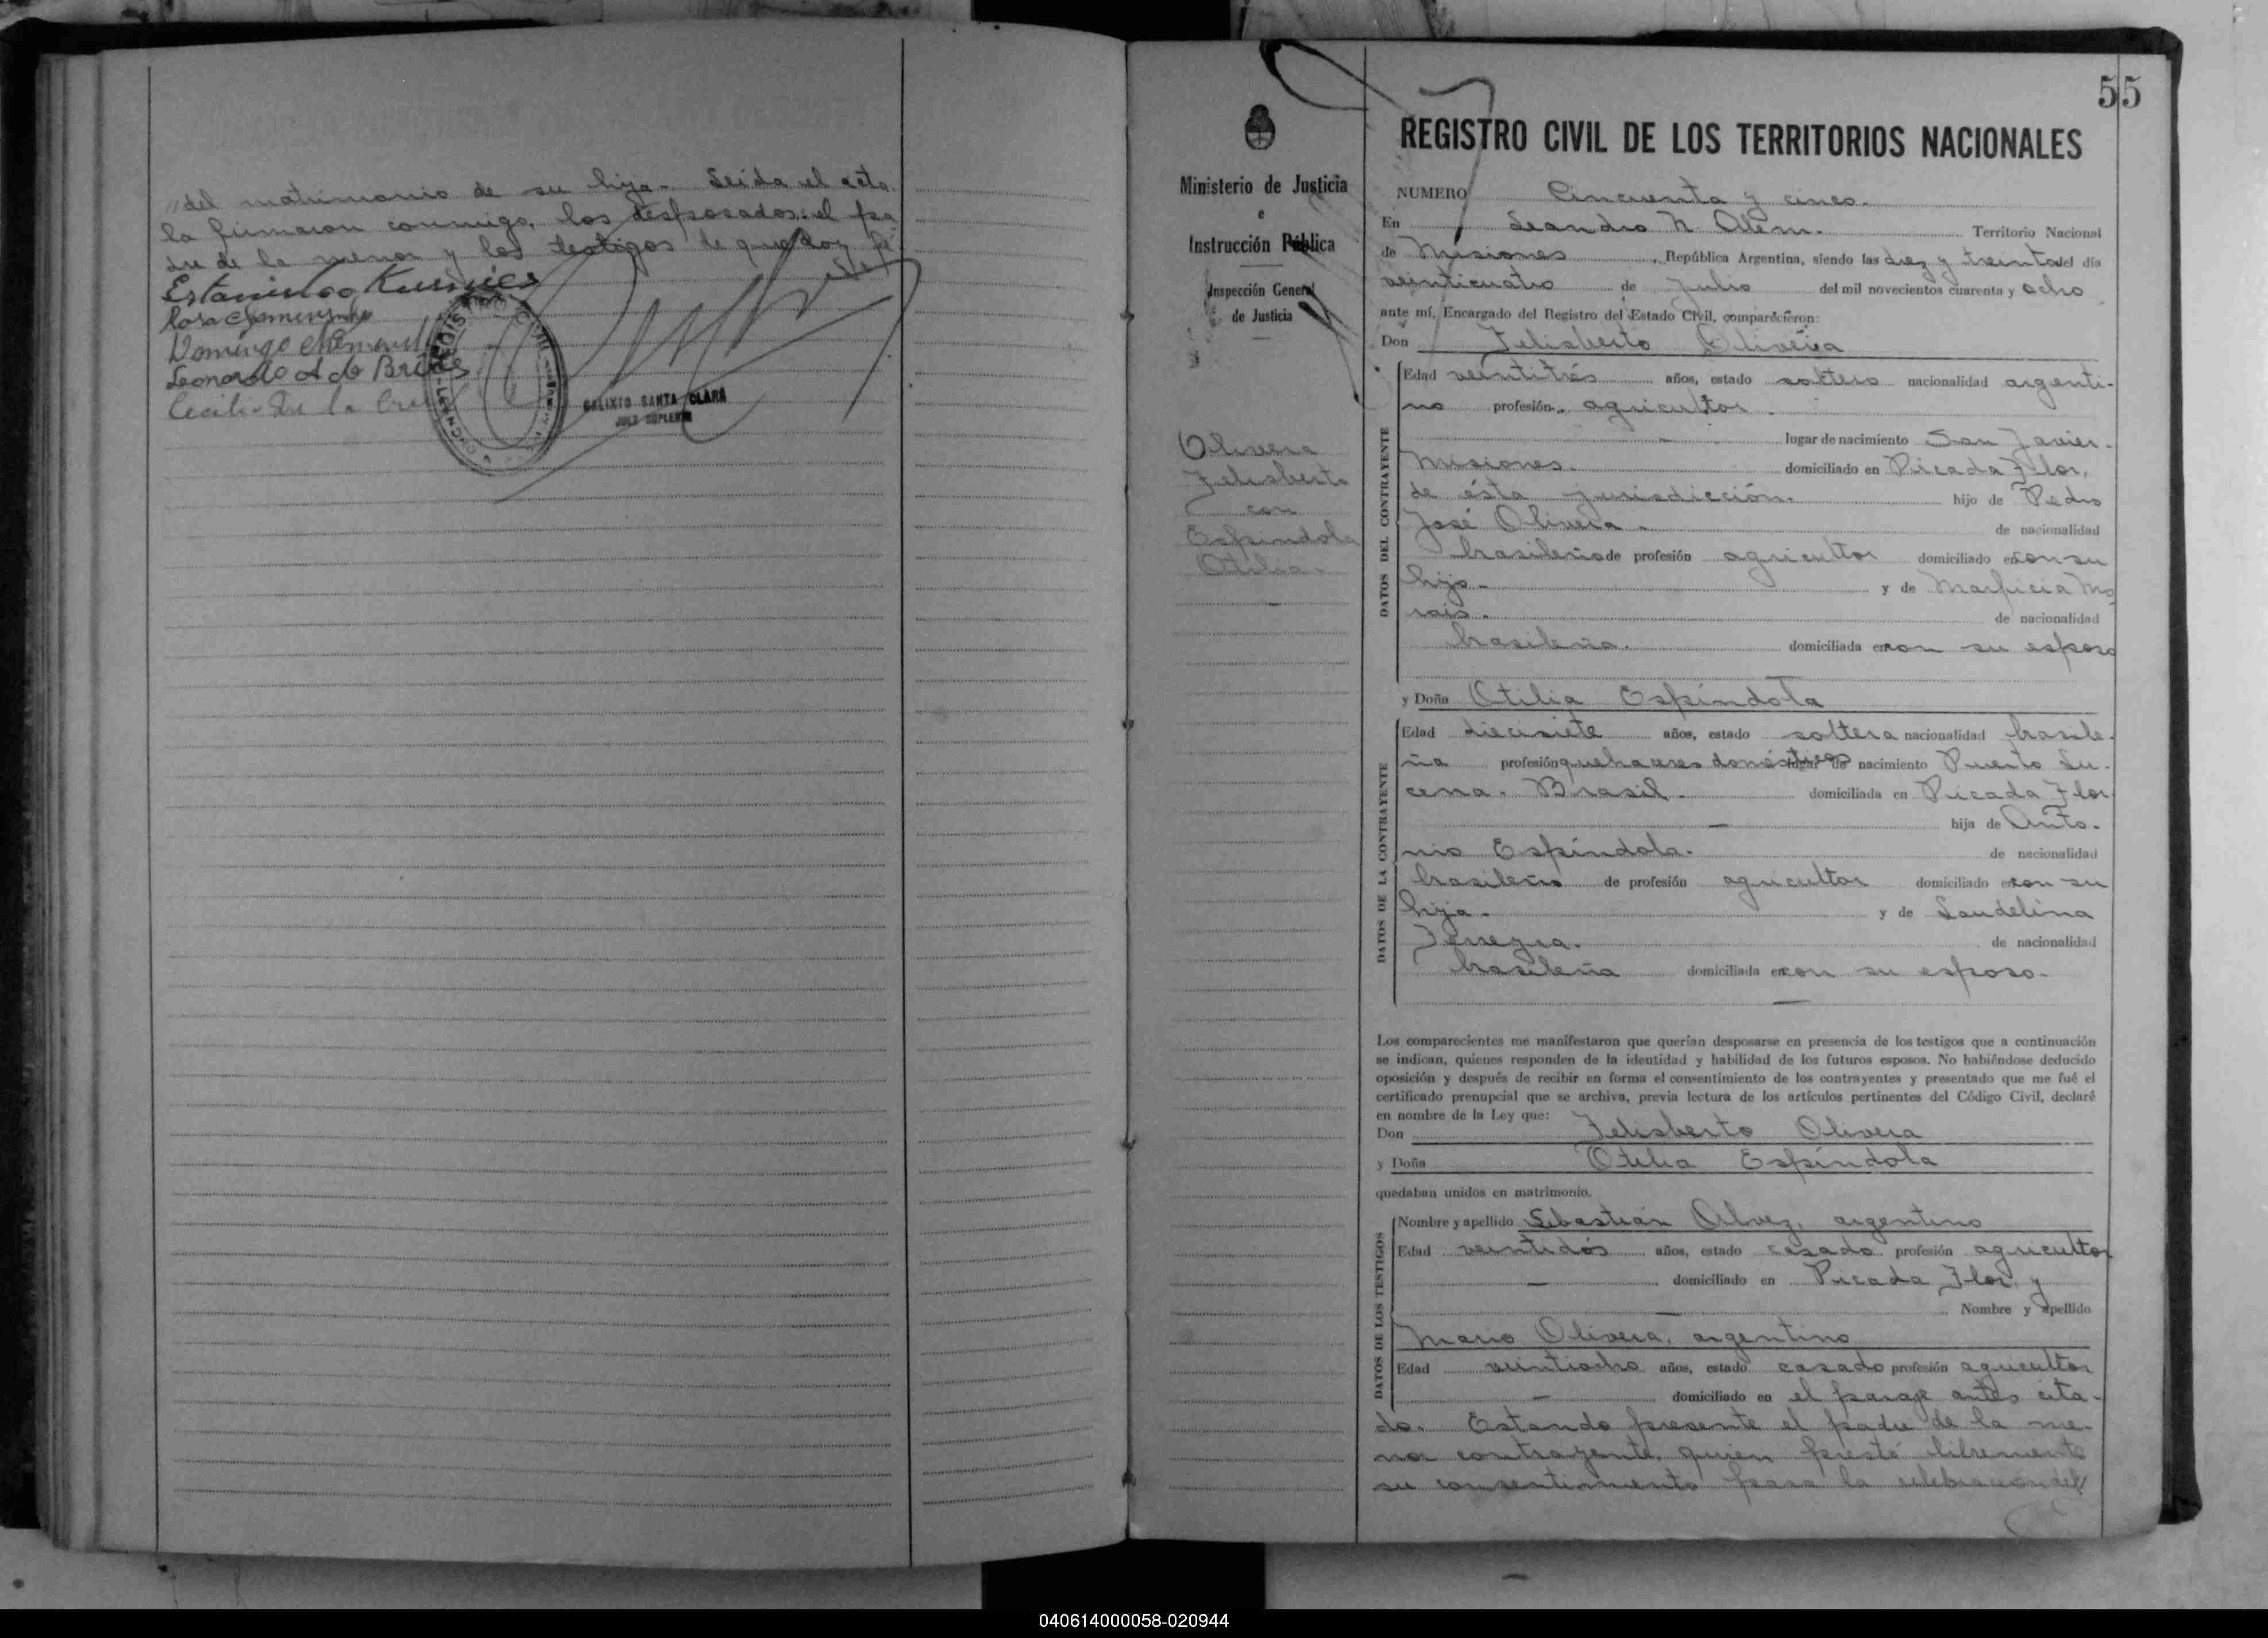 "del matrimonio de su hija.- Leída el acta
la firmaron conmigo, los desposados: el pa
dre de la menor y los testigos de que doy fé
Rosa
Domingo
Leonardo A de Brites
Cecilio De la Cruz
CALIXTO SANTA CLARA
JUEZ SUPLENTE
55
Ministerio de Justicia
e
Instrucción Pública
Inspección General
de Justicia
Olivera
Felisberto
con
Espindola
Otilia.
REGISTRO CIVIL DE LOS TERRITORIOS NACIONALES
NUMERO Cincuenta y cinco.
En Leandro N. Alem. Territorio Nacional
de Misiones, República Argentina, siendo las diez y treinta del día
veinticuatro de Julio del mil novecientos cuarenta y ocho
ante mí, Encargado del Registro del Estado Civil, comparecieron:
Don Felisberto Olivera
DATOS DEL CONTRAYENTE
Edad veintitrés años, estado soltero nacionalidad argenti-
no profesión agricultor
lugar de nacimiento San Javier-
Misiones. domiciliado en Picada Flor,
de ésta jurisdicción. hijo de Pedro
José Olivera. de nacionalidad
brasileño de profesión agricultor domiciliado en con su
hijo. y de Marfucia Mo
rais. de nacionalidad
brasileña. domiciliada en con su esposo
y Doña Otilia Espíndola
DATOS DE LA CONTRAYENTE
Edad diecisiete años, estado soltera nacionalidad brasile-
ña profesión quehaceres domésticos lugar de nacimiento Puerto Lu-
cena. Brasil. domiciliada en Picada Flor
hija de Anto-
nio Espíndola. de nacionalidad
brasileño de profesión agricultor domiciliado en con su
hija. y de Laudelina
Ferreyra. de nacionalidad
brasileña domiciliada en con su esposo.
Los comparecientes me manifestaron que querían desposarse en presencia de los testigos que a continuación
se indican, quienes responden de la identidad y habilidad de los futuros esposos. No habiéndose deducido
oposición y después de recibir en forma el consentimiento de los contrayentes y presentado que me fué el
certificado prenupcial que se archiva, previa lectura de los artículos pertinentes del Código Civil, declaré
en nombre de la Ley que:
Don Felisberto Olivera
y Doña Otilia Espíndola
quedaban unidos en matrimonio.
DATOS DE LOS TESTIGOS
Nombre y apellido Sebastián Alvez, argentino
Edad veintidós años, estado casado profesión agricultor
domiciliado en Picada Flor, y
Nombre y apellido
Mario Olivera, argentino
Edad veintiocho años, estado casado profesión agricultor
domiciliado en el paraje antes cita-
do. Estando presente el padre de la me-
nor contrayente, quien prestó libremente
su consentimiento para la celebración del//
040614000058-020944